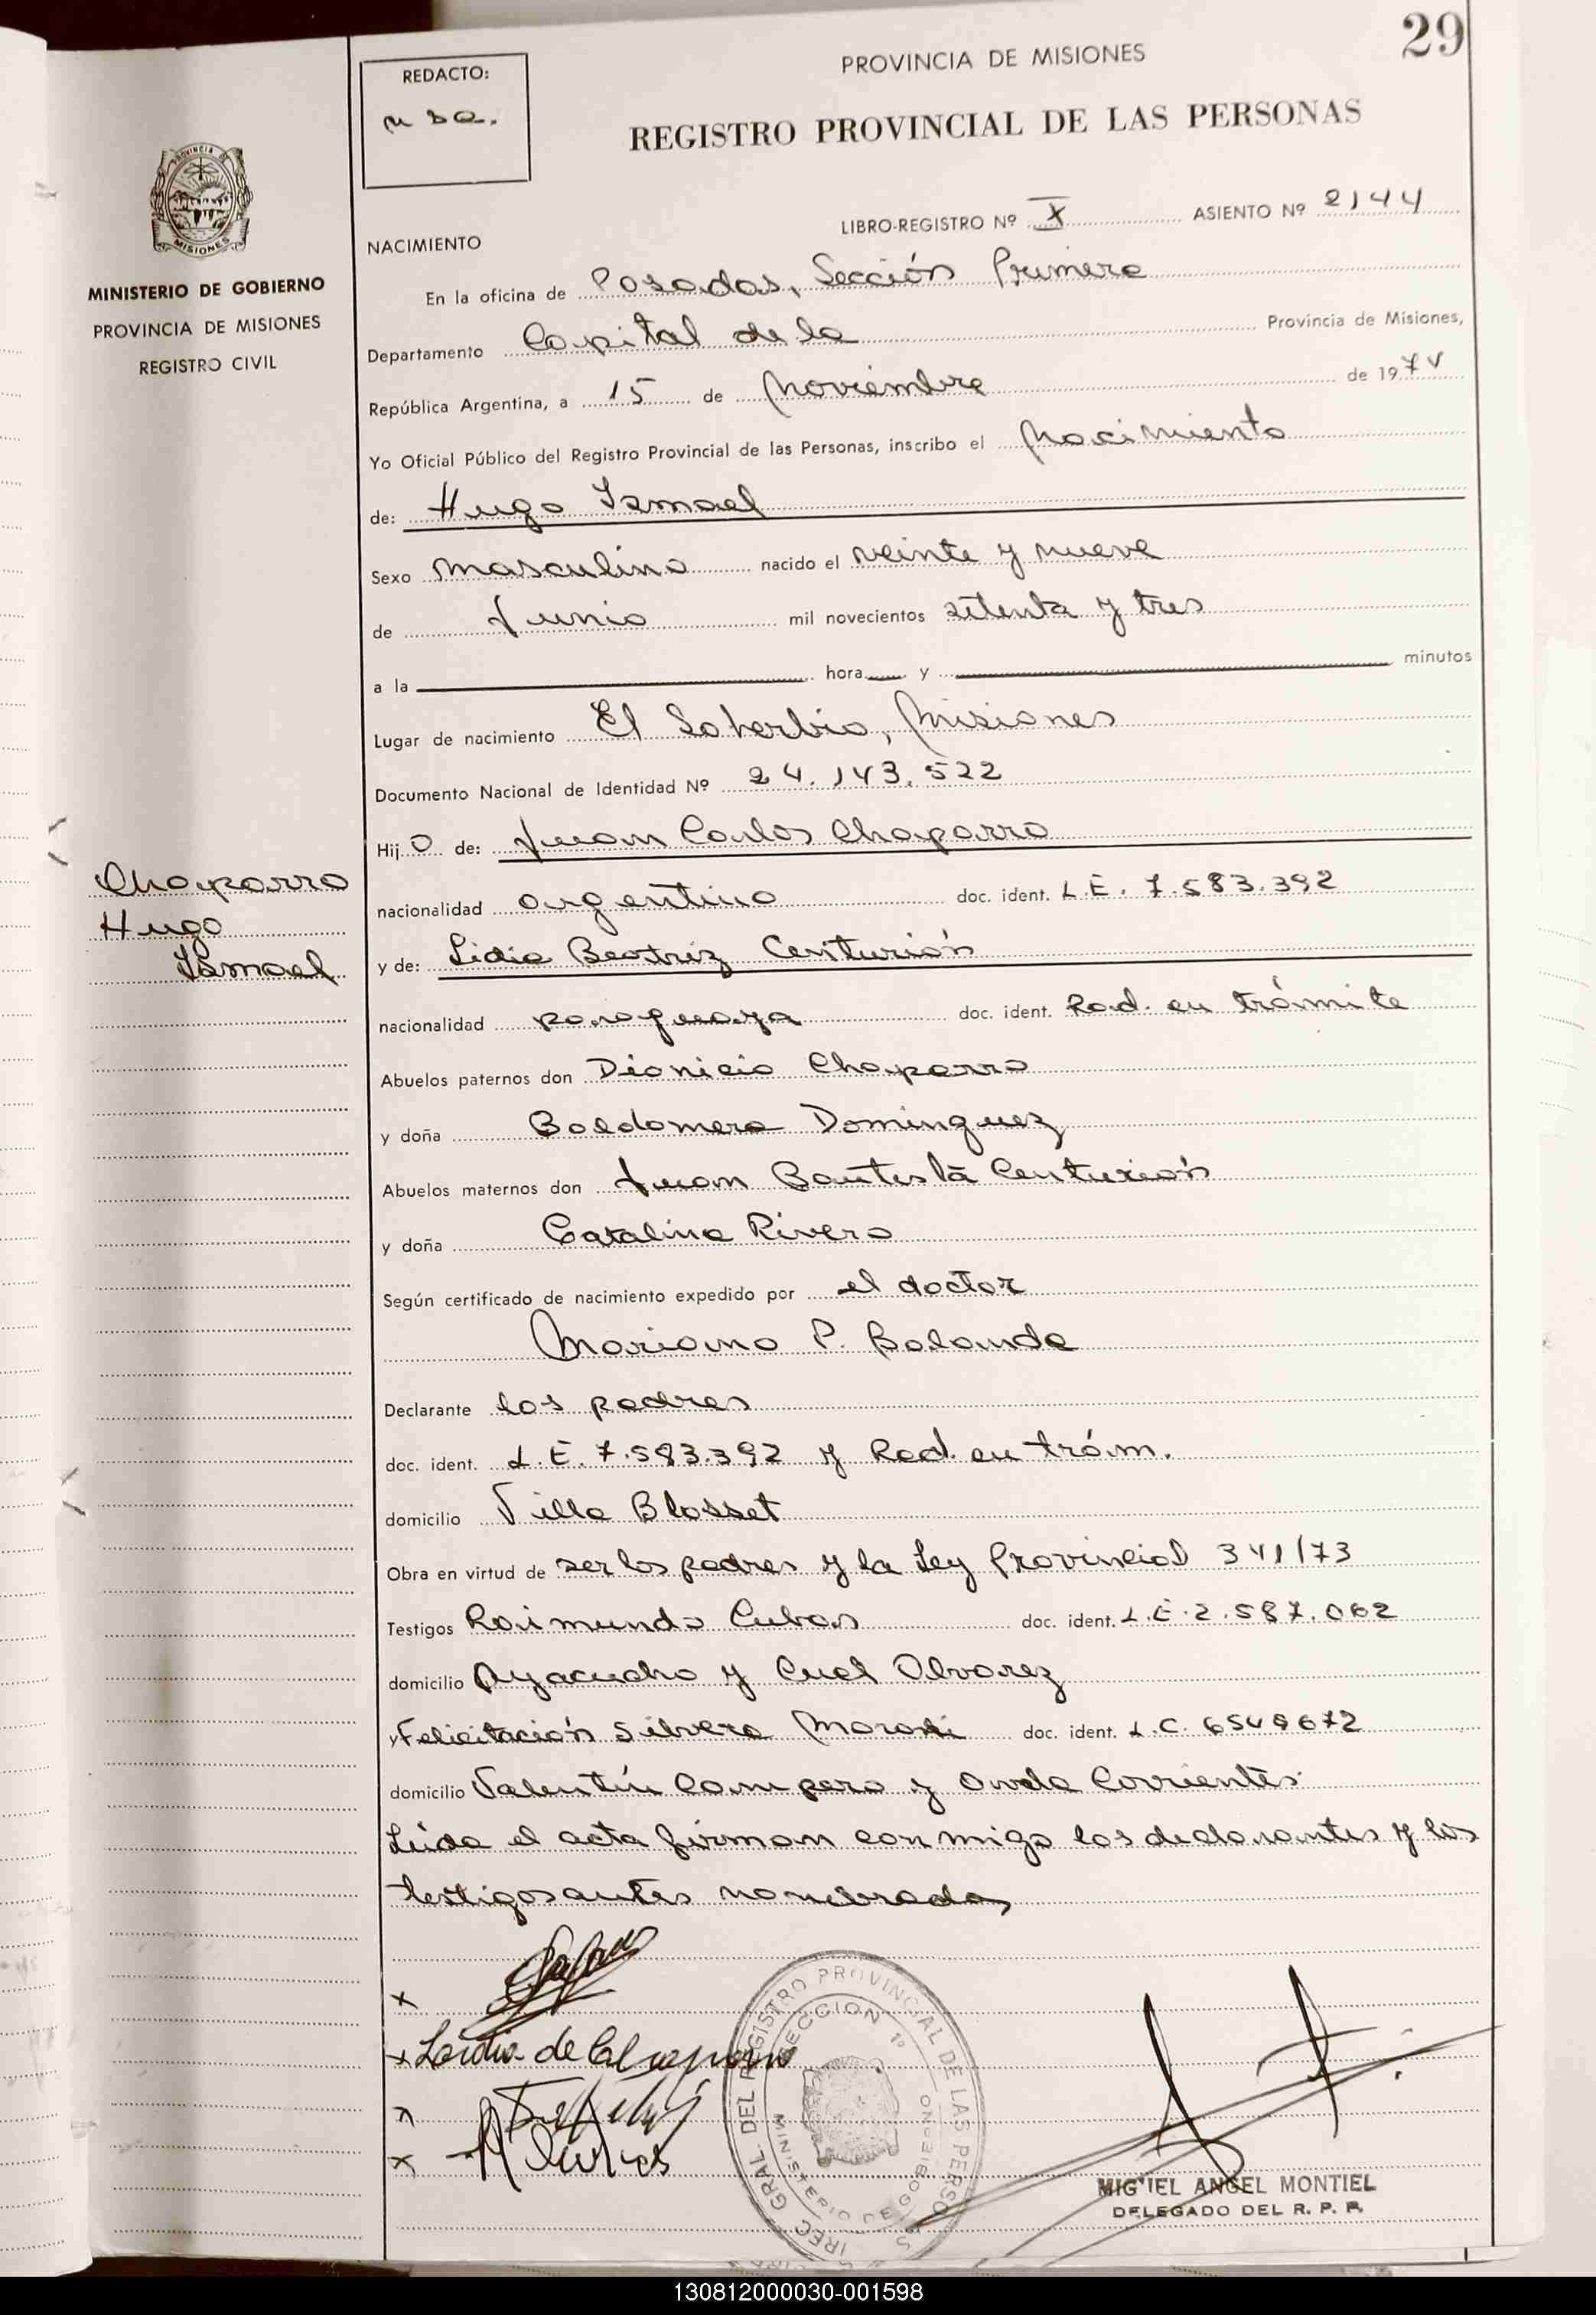 29
REDACTO:
PROVINCIA DE MISIONES
REGISTRO PROVINCIAL DE LAS PERSONAS
LIBRO-REGISTRO Nº X ASIENTO Nº 2144
MISIONES
MINISTERIO DE GOBIERNO
PROVINCIA DE MISIONES
REGISTRO CIVIL
NACIMIENTO
En la oficina de Posadas, Sección Primera
Departamento Capital de la Provincia de Misiones,
República Argentina, a 15 de Noviembre de 1974
Yo Oficial Público del Registro Provincial de las Personas, inscribo el Nacimiento
de: Hugo Ismael
Sexo masculino nacido el veinte y nueve
de Junio mil novecientos setenta y tres
a la hora y minutos
Lugar de nacimiento El Soberbio, Misiones
Documento Nacional de Identidad Nº 24.143.522
Hijo de: Juan Carlos Chaparro
nacionalidad argentino doc. ident. L.E. 7.583.392
Chaparro
Hugo
Ismael
y de: Lidia Beatriz Centurión
nacionalidad paraguaya doc. ident. Rad. en trámite
Abuelos paternos don Dionicio Chaparro
y doña Baldomera Dominguez
Abuelos maternos don Juan Bautista Centurión
y doña Catalina Rivero
Según certificado de nacimiento expedido por el doctor
Mariano P. Balanda
Declarante los padres
doc. ident. L.E. 7.583.392 y Rad. en trám.
domicilio Villa Blosset
Obra en virtud de ser los padres y la Ley Provincial 341/73
Testigos Raimundo Cubas doc. ident. L.E. 2.587.062
domicilio Ayacucho y Cnel Alvarez
y Felicitación Silvera doc. ident. L.C. 6549672
domicilio Valentín Campero y Avda Corrientes.
Leída el acta firman conmigo los declarantes y los
testigos antes nombrados
x
x de Chaparro
x
x
DIREC. GRAL. DEL REGISTRO PROVINCIAL DE LAS PERSONAS
SECCION 1º
MINISTERIO DE GOBIERNO
MIGUEL ANGEL MONTIEL
DELEGADO DEL R. P. P.
130812000030-001598